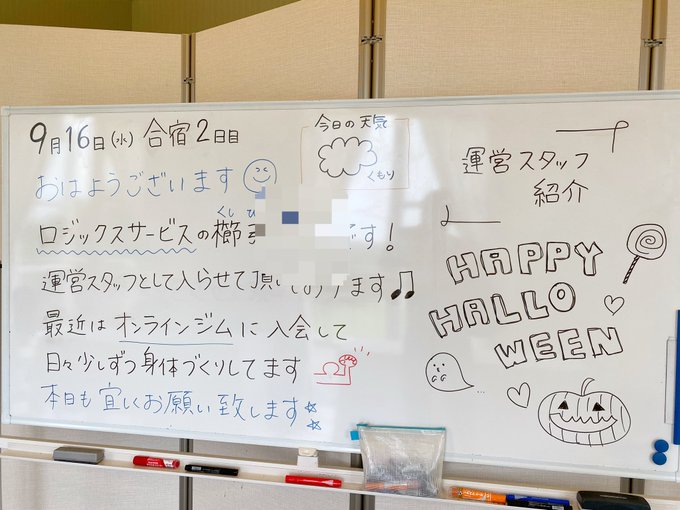 9月16日(水) 合宿2日目
おはようございます
くし ひ
ロジックスサービスの櫛
です!
運営スタッフとして入らせて頂いております♫
最近はオンラインジムに入会して
日々少しずつ身体づくりしてます
本日も宜しくお願い致します☆☆
今日の天気
くもり
運営スタッフ
紹介
HAPPY
HALLO
WEEN